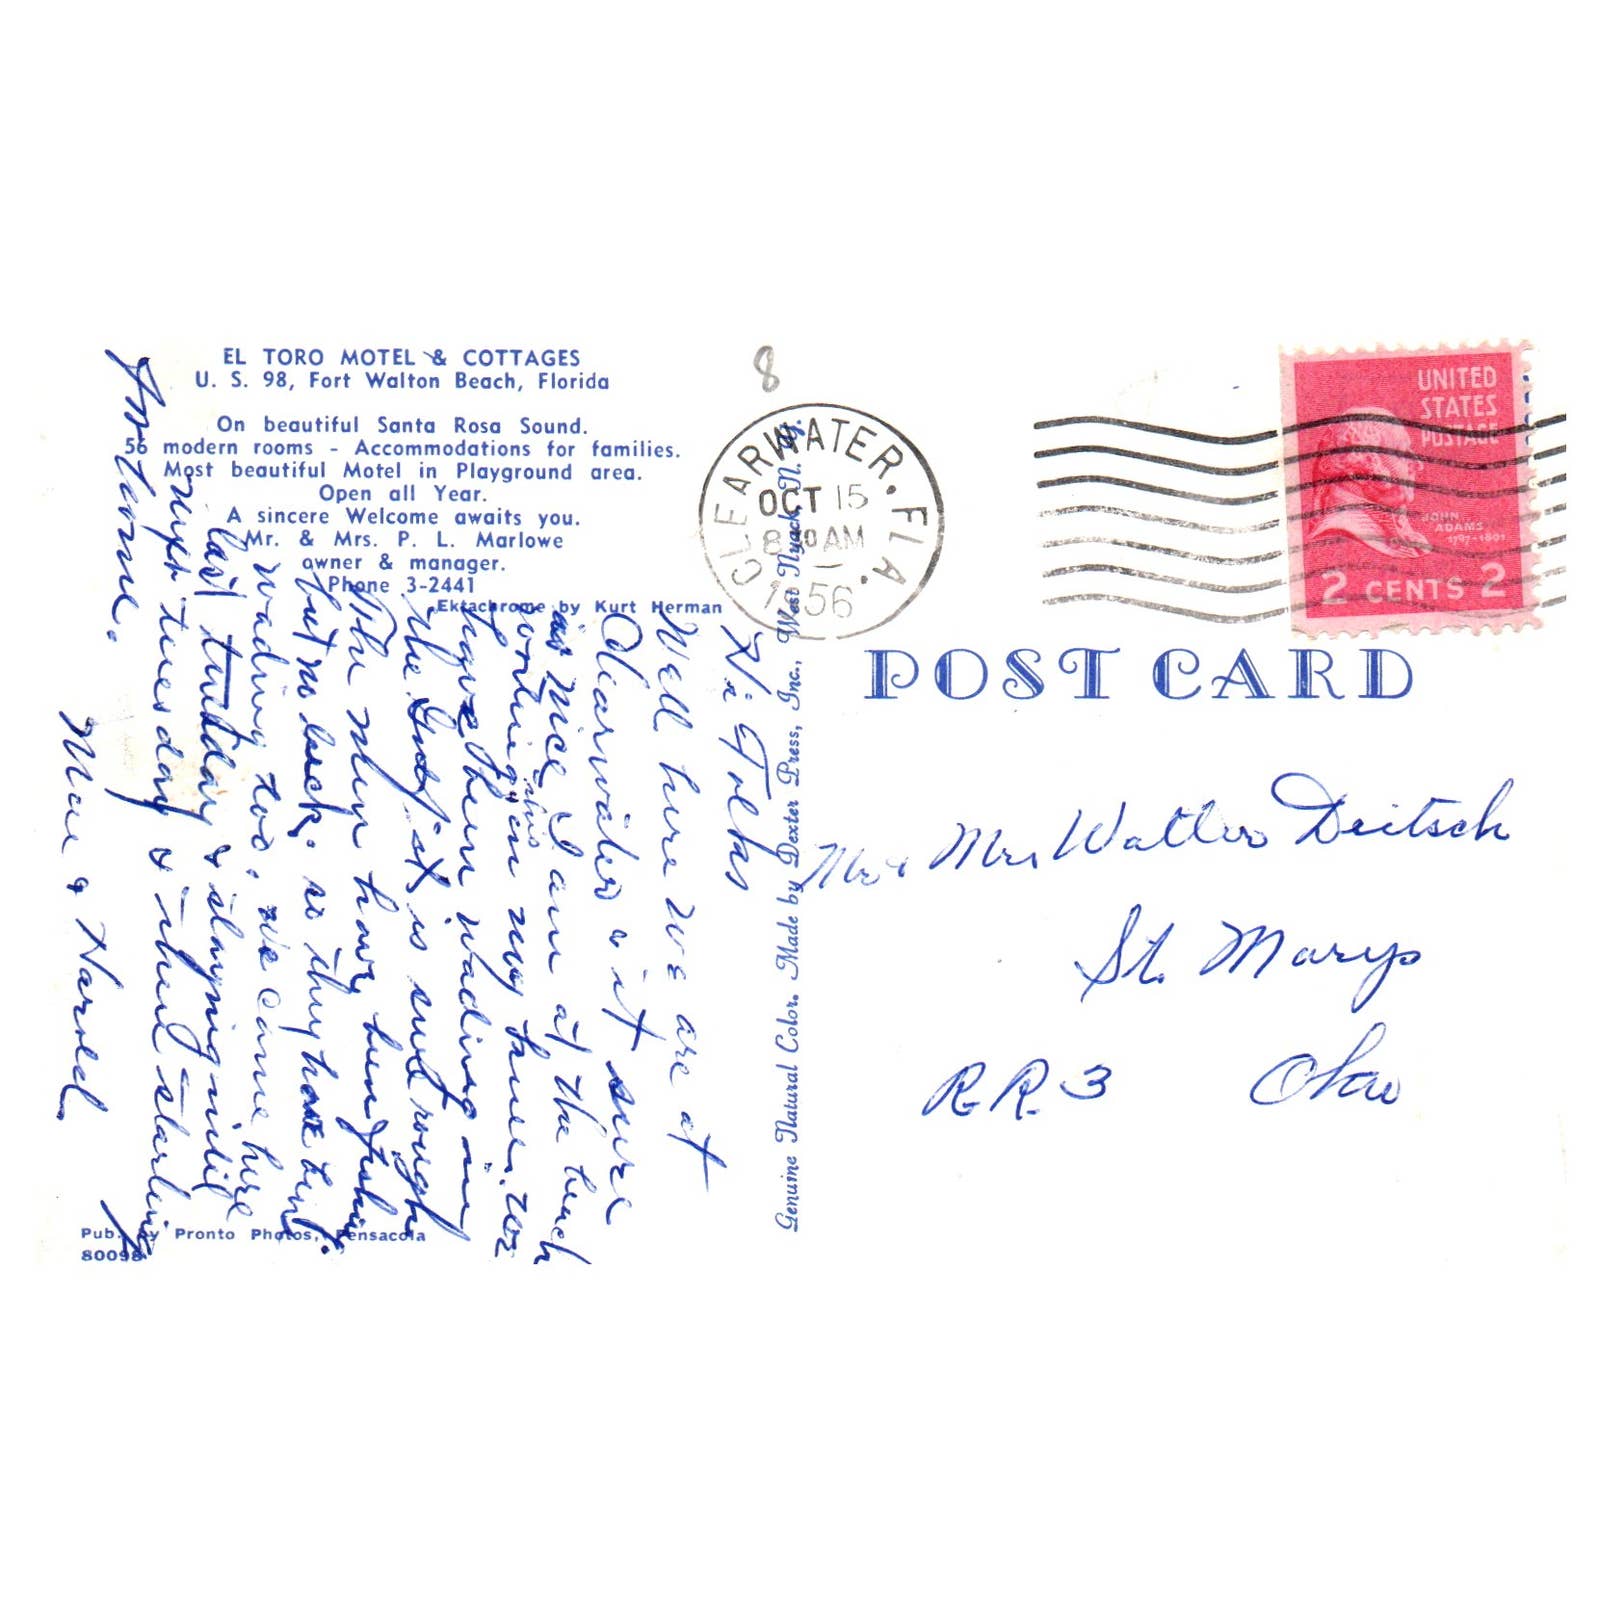 EL TORO MOTEL & COTTAGES
U. S. 98, Fort Walton Beach, Florida
On beautiful Santa Rosa Sound.
56 modern rooms - Accommodations for families.
Most beautiful Motel in Playground area.
Open all Year.
A sincere Welcome awaits you.
Mr. & Mrs. P. L. Marlowe
owner & manager.
Phone 3-2441
Ektachrome by Kurt Herman
Hi Folks
Well here we are at
Clearwater & it sure
is nice I am at the beach
writing this on my knee. we
have been wading in
the Gulf it is real rough
The men have been fishing
but no luck. so they have been
wading too. we came here
last tuesday & staying until
next tuesday & then starting
for home.
Mae & Harold
Pub. by Pronto Photos, Pensacola
80098
Genuine Natural Color. Made by Dexter Press, Inc., West Nyack, N. Y.
8
CLEARWATER, FLA.
OCT 15
8 30 AM
1956
UNITED
STATES
POSTAGE
JOHN
ADAMS
1797-1801
2 CENTS 2
POST CARD
Mr & Mrs Walter Deitsch
St. Marys
R.R. 3 Ohio